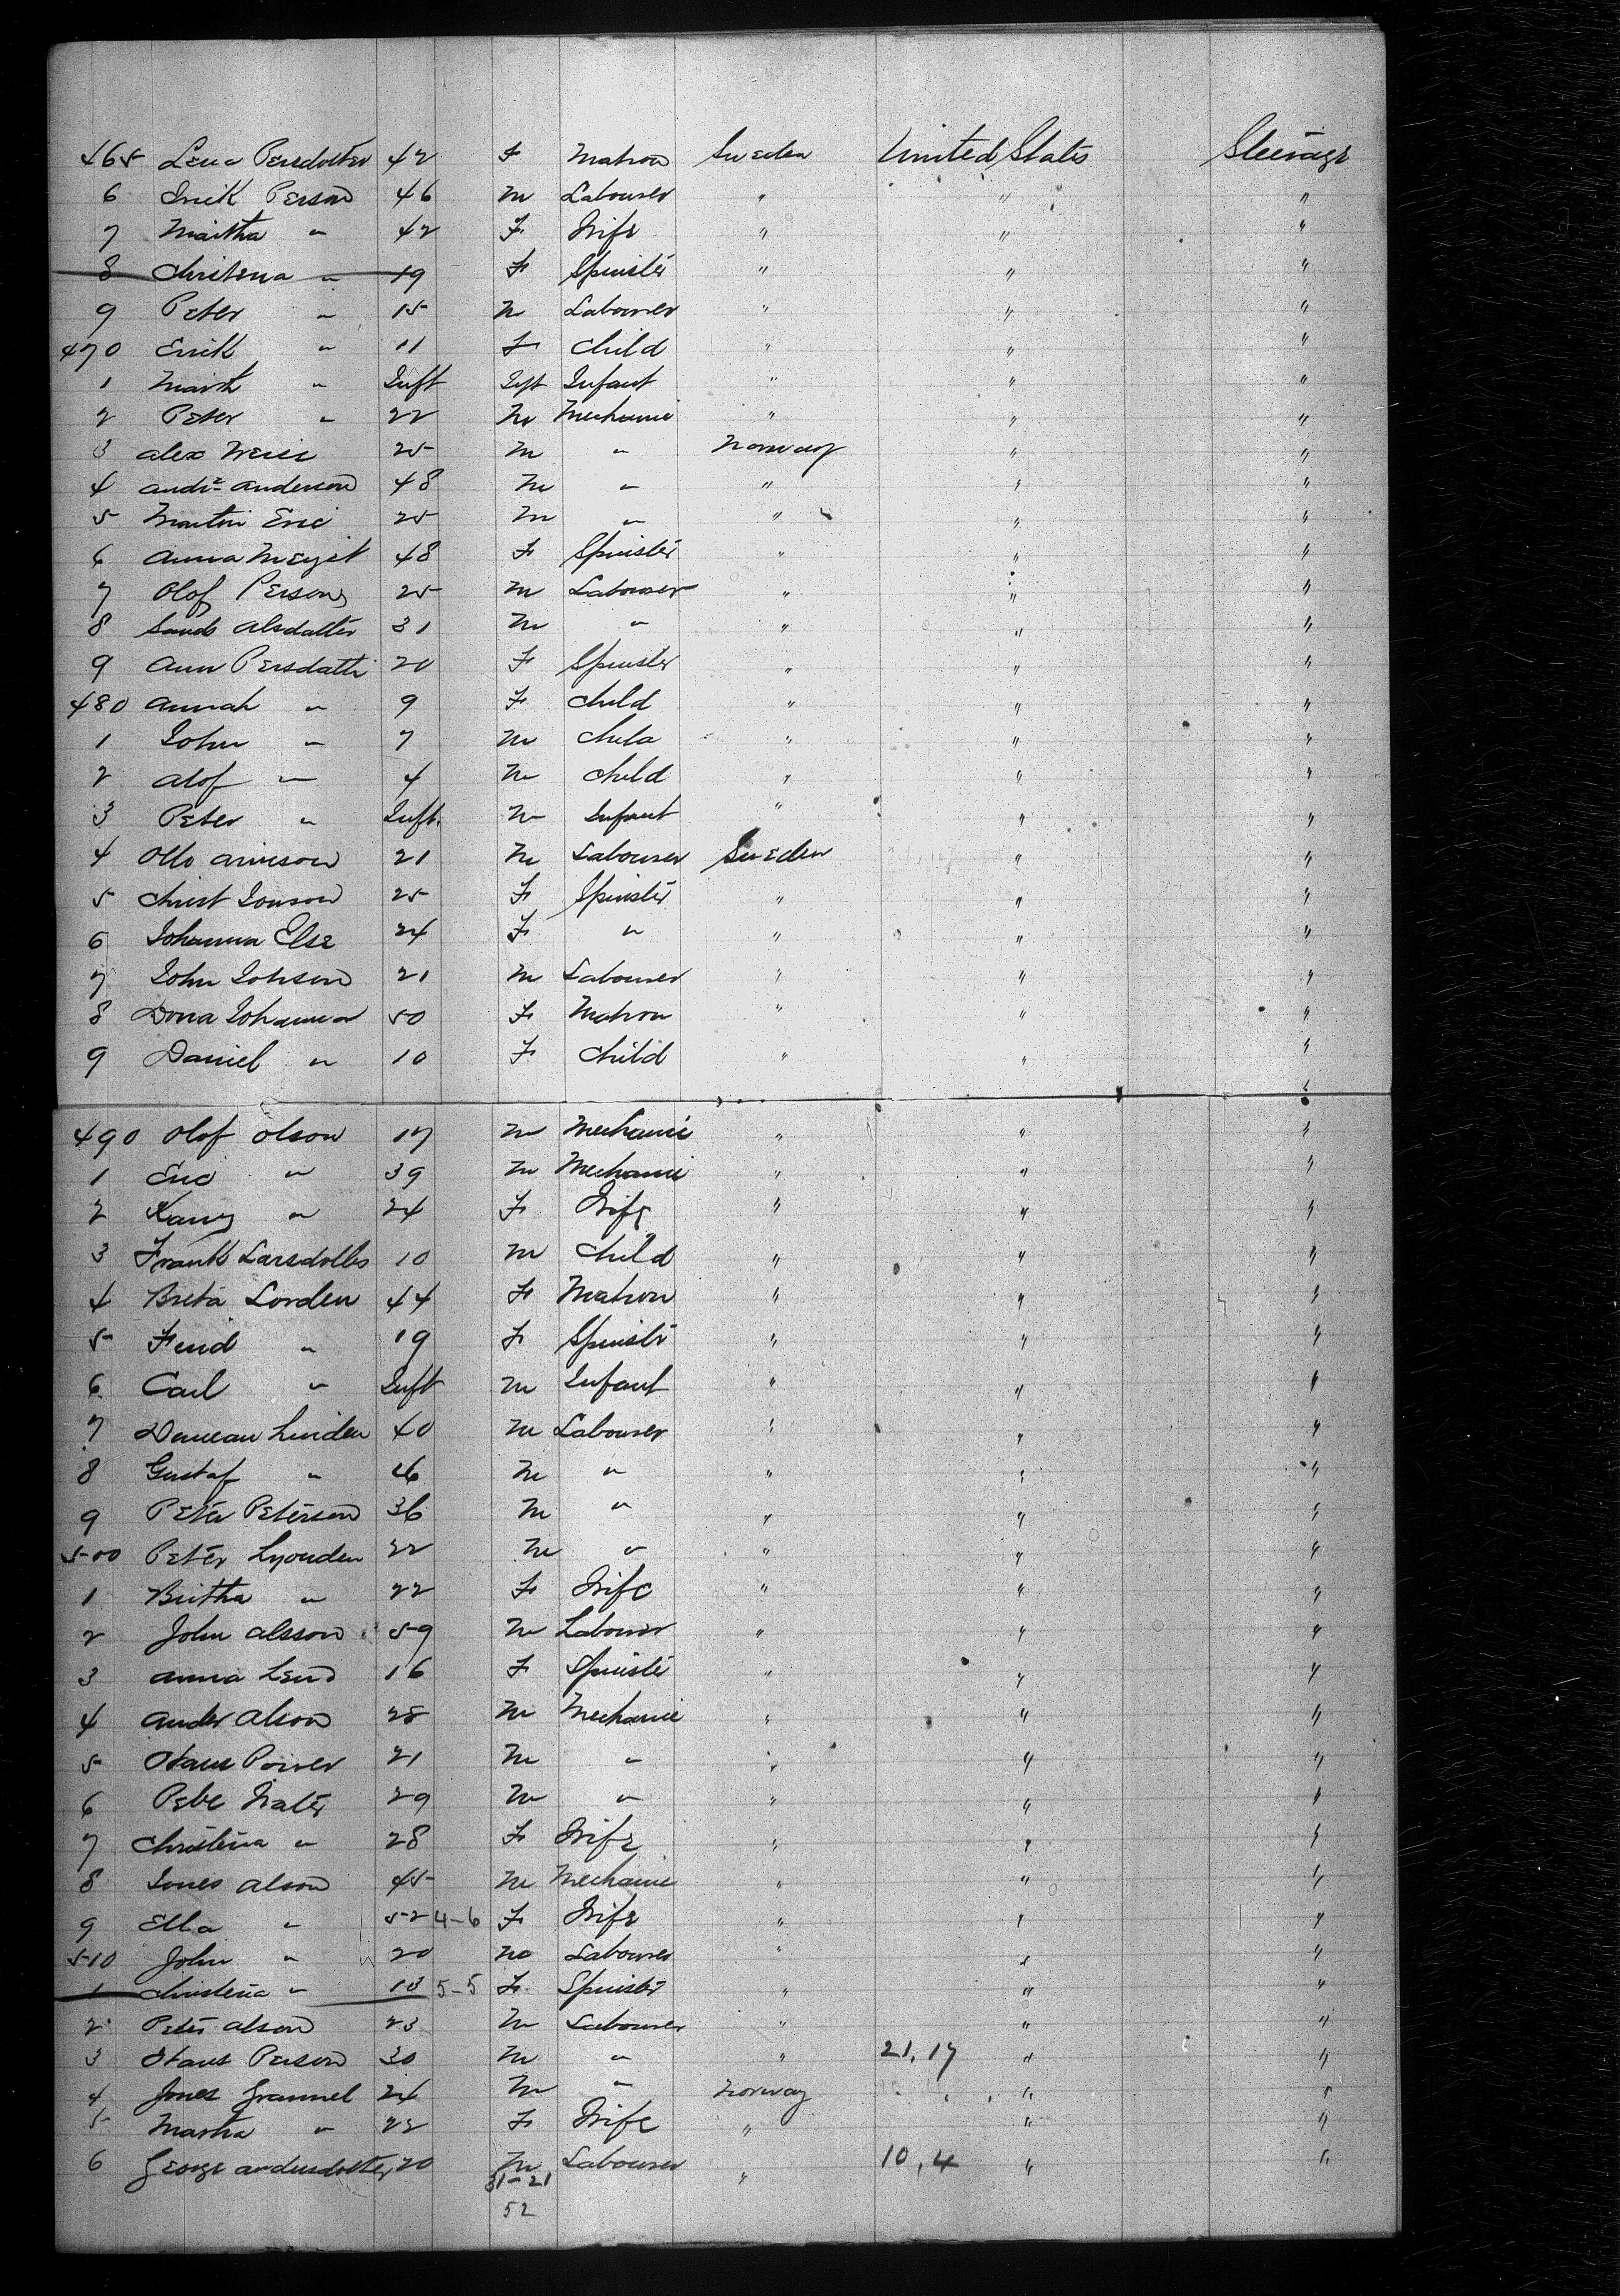 465 Lena Persdotter 42 F Matron Sweden United States Steerage
6 Erick Person 46 M Labourer " " "
7 Martha " 42 F Wife " " "
8 Christena " 19 F Spinster " " "
9 Peter " 15 M Labourer " " "
470 Errik " 11 F Child " " "
1 Marth " Inft Inft Infant " " "
2 Peter " 22 M Mechanic " " "
3 Alex 25 M " Norway " "
4 Andr Anderson 48 M " " " "
5 Martin Eric 25 M " " " "
6 Anna 48 F Spinster " " "
7 Olof Persong 25 M Labourer " " "
8 Alsdatter 31 M " " " "
9 Ann Persdattr 20 F Spinster " " "
480 Annah " 9 F Child " " "
1 John " 7 M Child " " "
2 Alof " 4 M Child " " "
3 Peter " Inft. M Infant " " "
4 Ollo Arneson 21 M Labourer Sweden " "
5 Christ Jonson 25 F Spinster " " "
6 Johanna Else 24 F " " " "
7 John Johnson 21 M Labourer " " "
8 Dona Johanna 50 F Matron " " "
9 Daniel " 10 F Child " " "
490 Olof Olson 17 M Mechanic " " "
1 Eric " 39 M Mechanic " " "
2 " 24 F Wife " " "
3 Frank Larsdotter 10 M Child " " "
4 Breta Lorden 44 F Matron " " "
5 " 19 F Spinster " " "
6 Carl " Inft M Infant " " "
7 Linden 40 M Labourer " " "
8 Gustaf " 26 M " " " "
9 Peter Peterson 36 M " " " "
500 Peter Lyonden 22 M " " " "
1 Britha " 22 F Wife " " "
2 John Alsson 59 M Labourer " " "
3 Anna Lend 16 F Spinster " " "
4 Ander Alson 28 M Mechanic " " "
5 Hans Power 21 M " " " "
6 29 M " " " "
7 Christena " 28 F Wife " " "
8 Jones Alson 45 M Mechanic " " "
9 Ella " 52 4-6 F Wife " " "
510 John " 20 M Labourer " " "
1 Christena " 13 5-5 F Spinster " " "
2 Peter Alson 23 M Labourer " " "
3 Hans Person 30 M " " 21,17 " "
4 Jones Grammel 24 M " Norway " "
5 Martha " 22 F Wife " " "
6 George Andersdotter 20 M Labourer " 10,4 " "
31-21
52